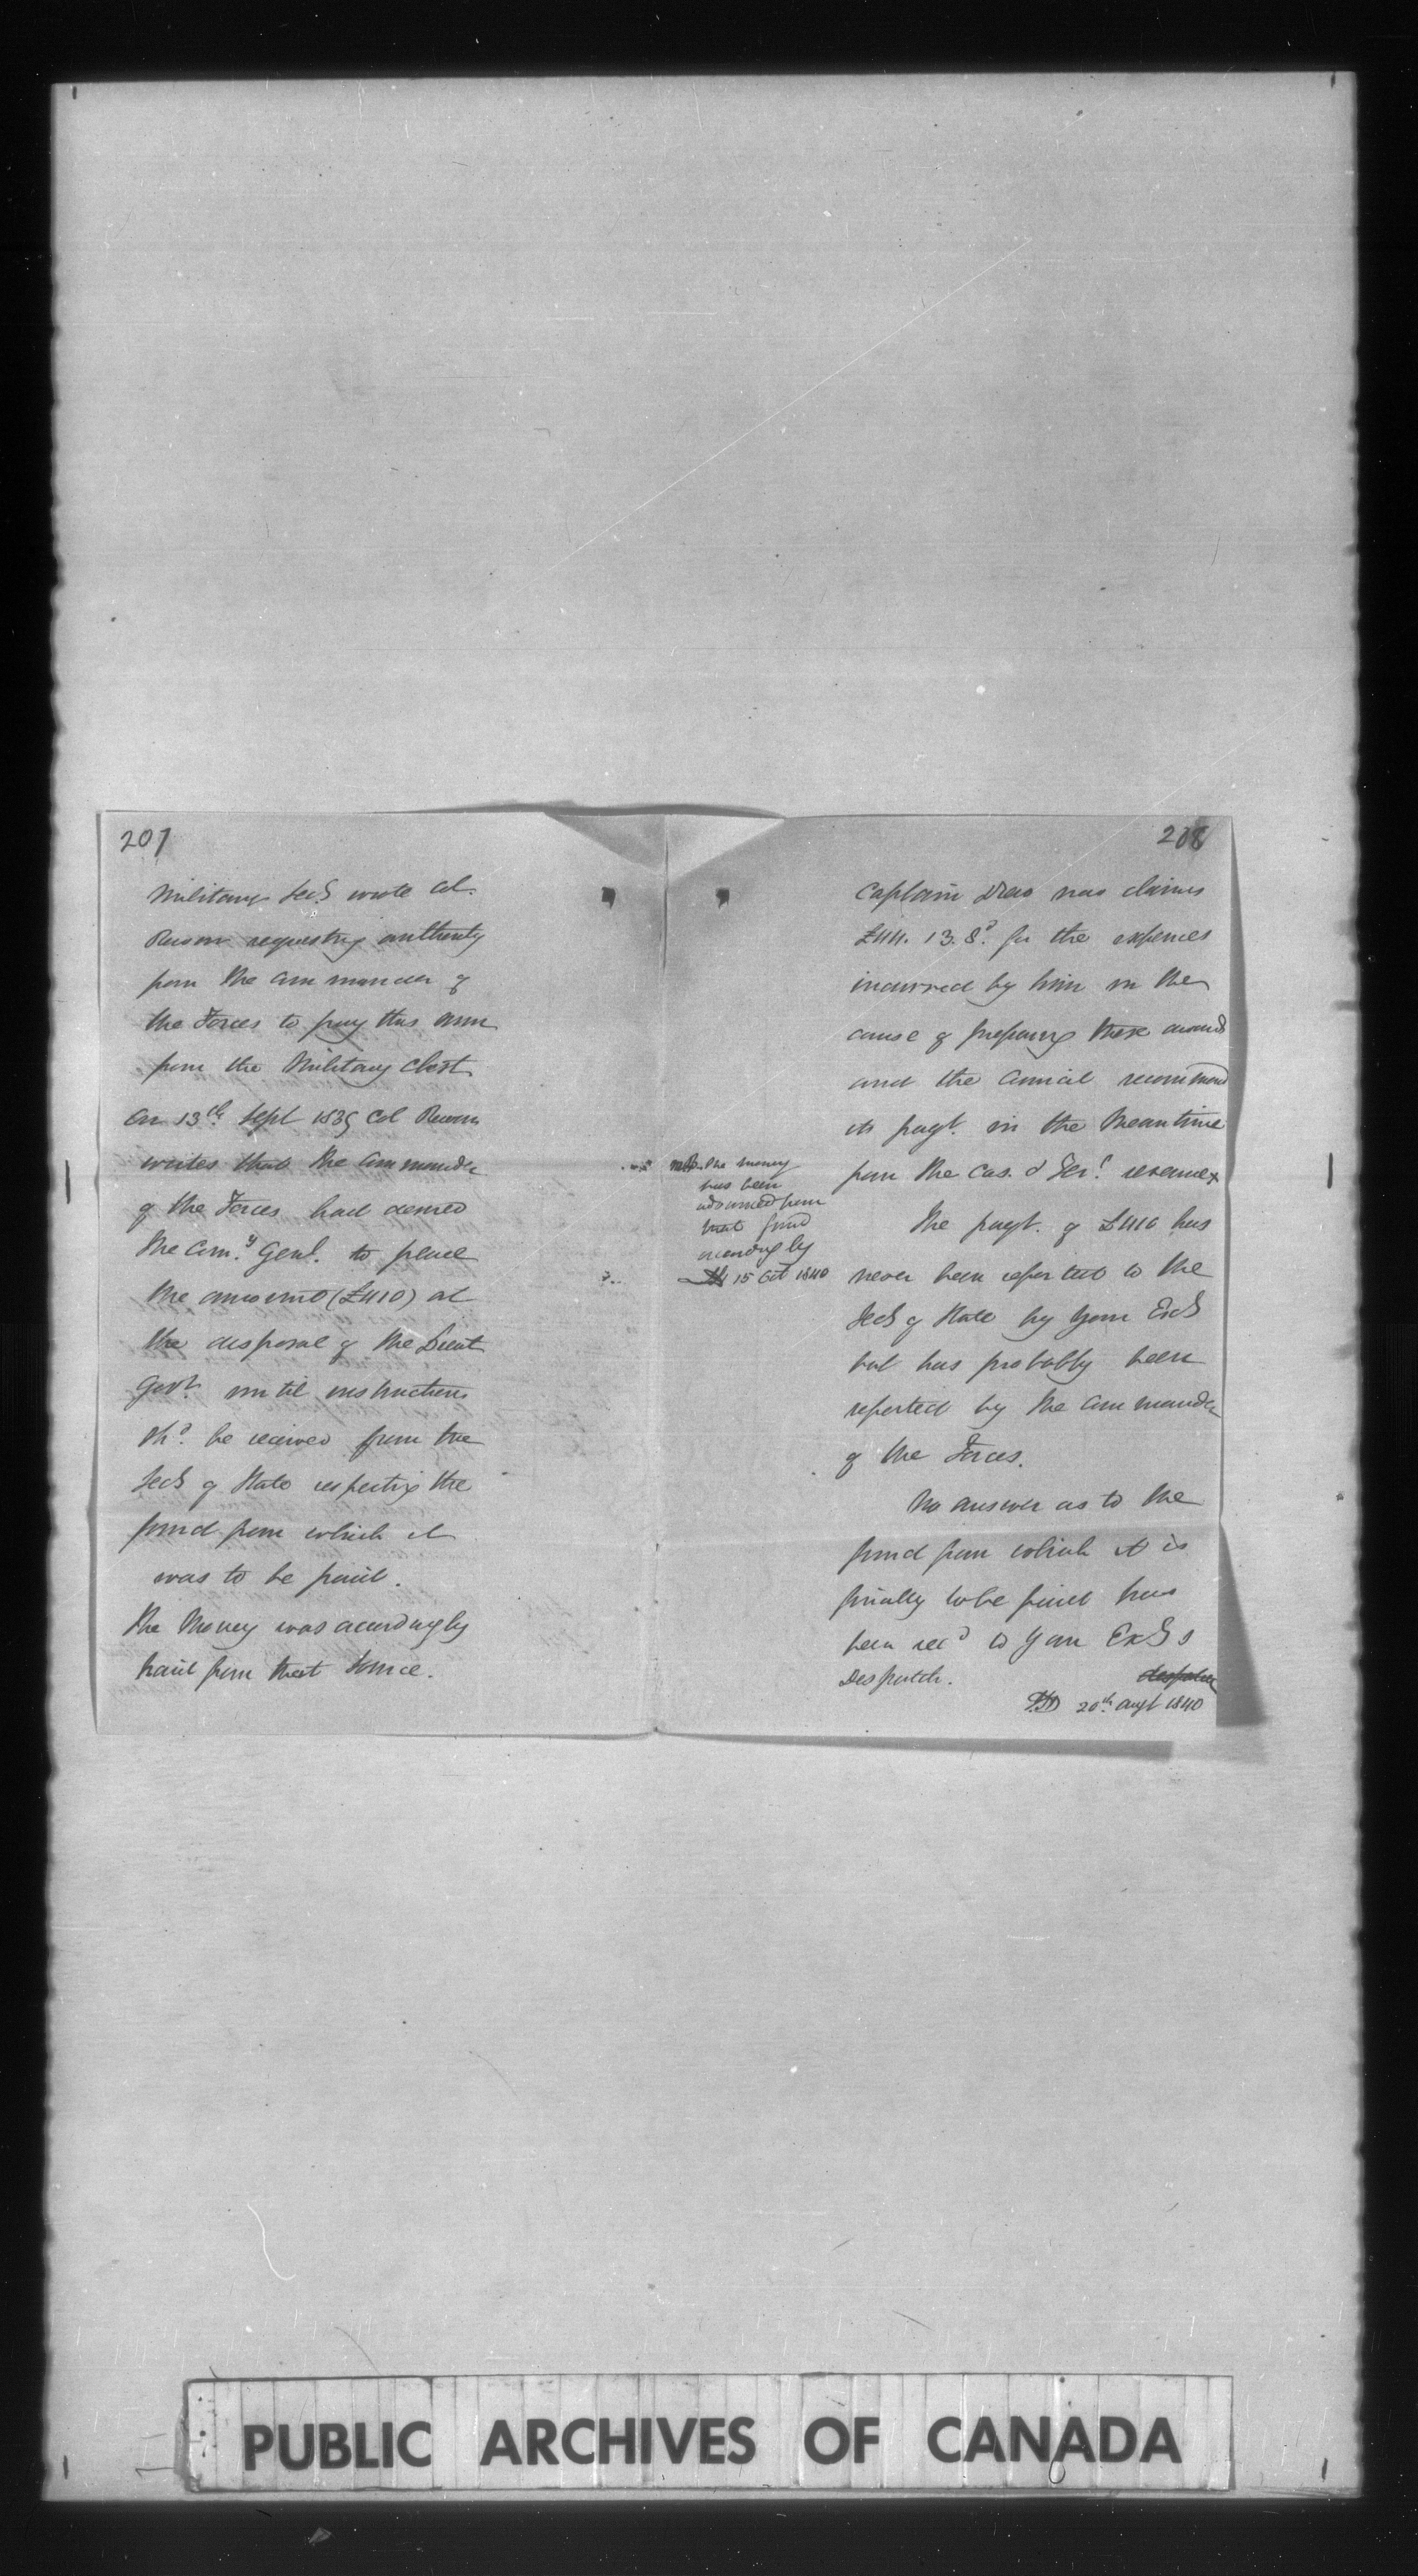 207
Military Secy wrote Col.
Rowan requesting authority
from the Commander of
the Forces to pay this sum
from the Military Chest
On 13th Sept 1839 Col Rowan
writes that the Commander
of the Forces had desired
the Comy. Genl. to place
the amount (£410) at
the disposal of the Lieut
Govr until instructions
shd. be received from the
Secy of State respecting the
fund from which it
was to be paid.
The Money was accordingly
paid from that source.
208
Captain Drew now claims
£44. 13. 8d. for the expences
incurred by him in the
course of preparing these accounts
and the Council recommend
its payt. in the Meantime
from the Cas. & Terl. revenue x
The payt. of £410 has
never been reported to the
Secy of State by Your Excy
but has probably been
reported by the Commander
of the Forces.
No answer as to the
fund from which it is
finally to be paid has
been recd to Your Excy's
Despatch. despatch
20th Augt 1840
The money
has been
advanced from
that fund
accordingly
15 Oct 1840
PUBLIC ARCHIVES OF CANADA